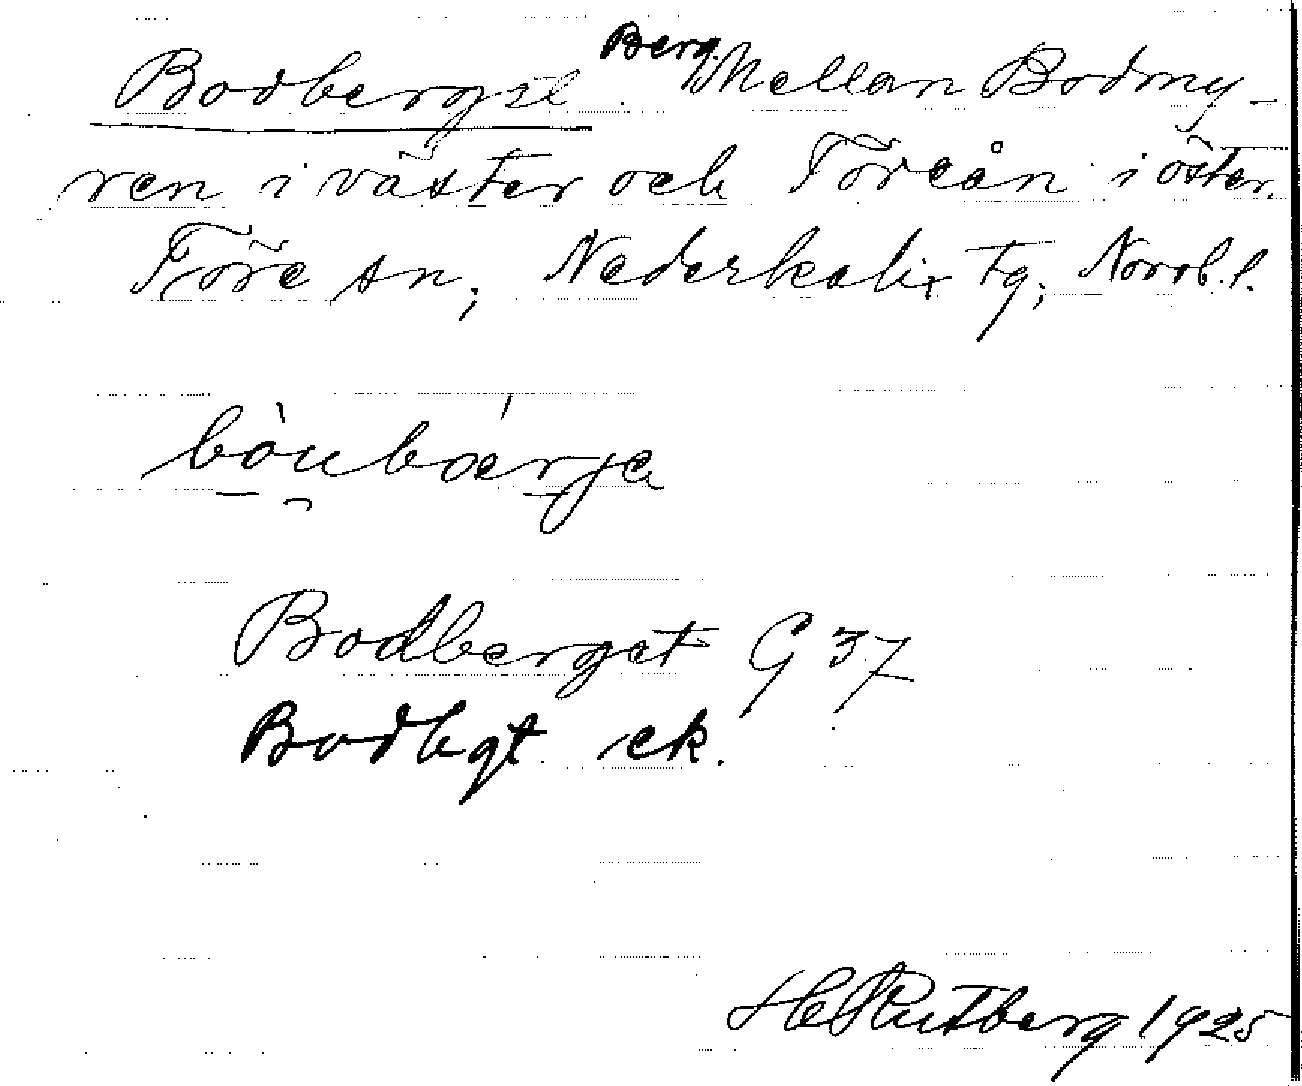 Bodberget Berg. Mellan Bodmy-
ren i väster och Töreån i öster.
Töre sn, Nederkalix tg, Norrb. l.
bòubǽrjə
Bodberget G 37
Bodbgt ek.
H Rutberg 1925